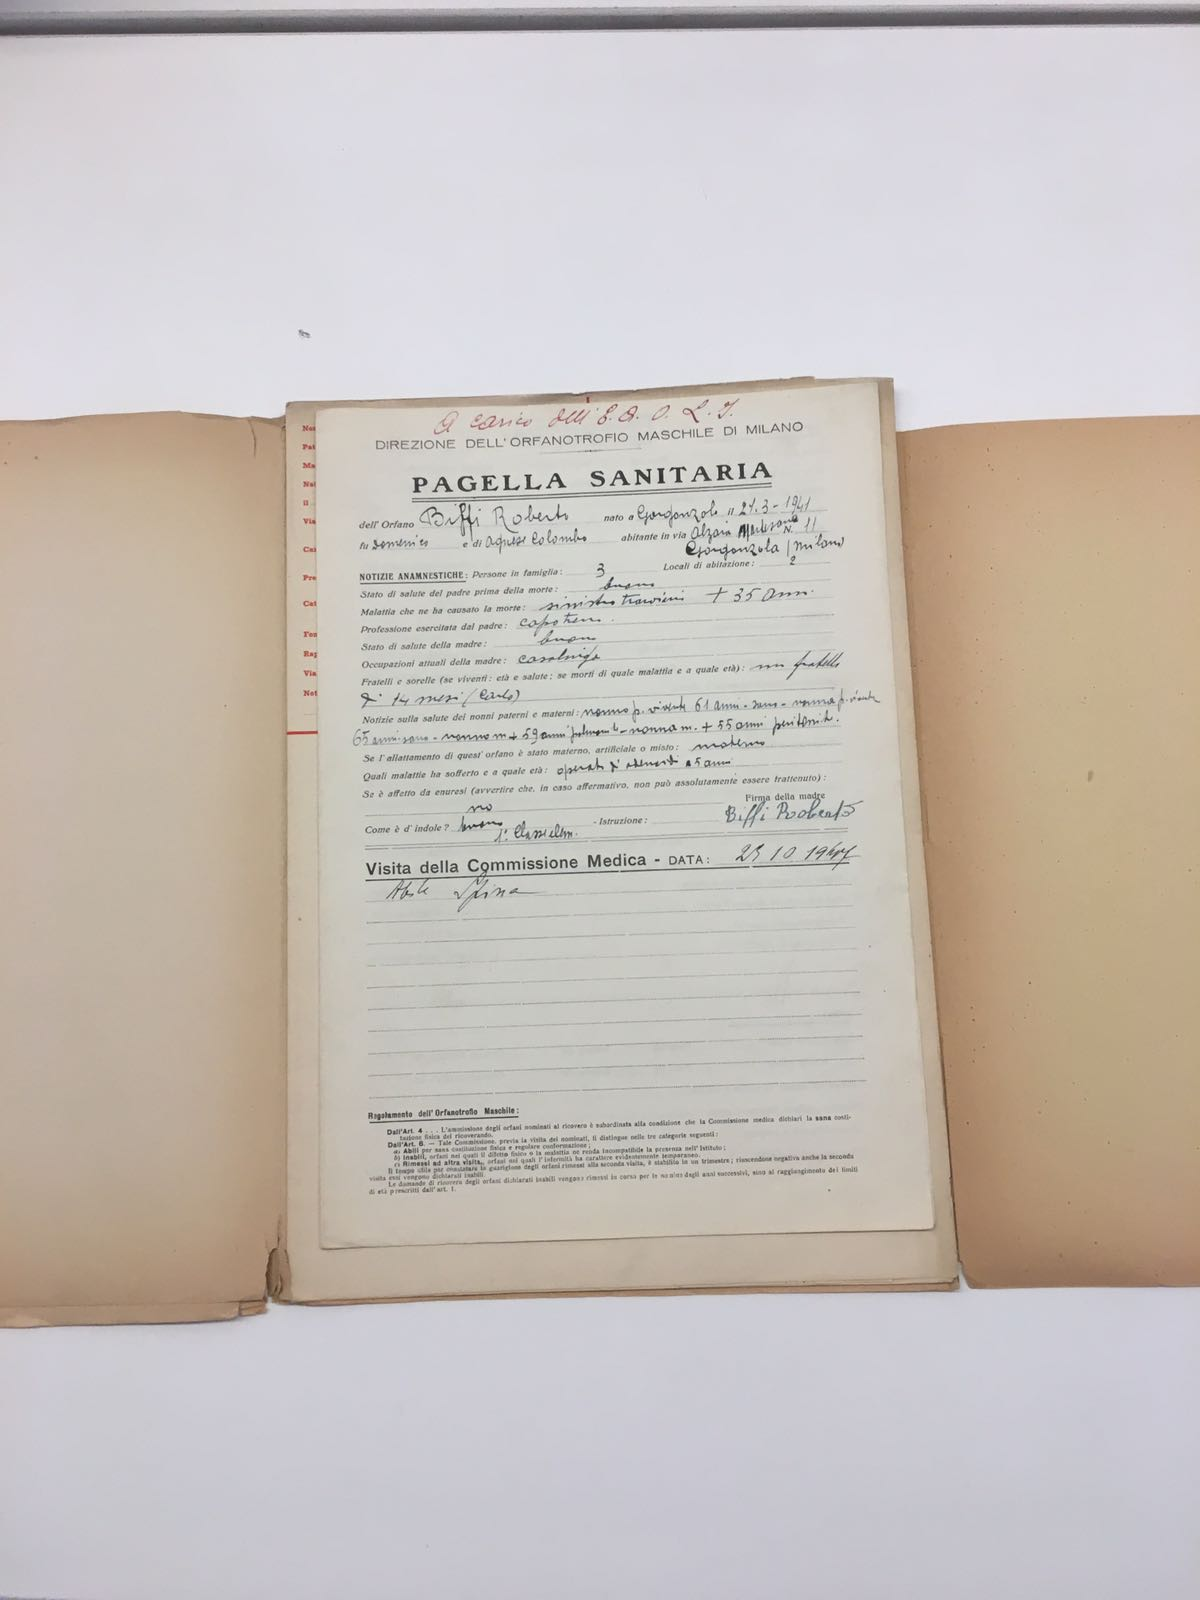 A carico dell'E.A.O.L.I.
DIREZIONE DELL'ORFANOTROFIO MASCHILE DI MILANO
PAGELLA SANITARIA
dell'Orfano Biffi Roberto nato a Gorgonzola il 21.3-1941
fu Domenico e di Agnese Colombo abitante in via Alzaia Martesana N. 11
Gorgonzola / Milano
NOTIZIE ANAMNESTICHE: Persone in famiglia: 3 Locali di abitazione: 2
Stato di salute del padre prima della morte: buono
Malattia che ne ha causato la morte: sinistro + 35 anni
Professione esercitata dal padre: capotreno
Stato di salute della madre: buono
Occupazioni attuali della madre: casalinga
Fratelli e sorelle (se viventi: età e salute; se morti di quale malattia e a quale età): un fratello
di 14 mesi (Carlo)
Notizie sulla salute dei nonni paterni e materni: nonno p. vivente 61 anni - sano - nonna p. vivente
65 anni - sano - nonno m + 59 anni - nonna m. + 55 anni peritonite.
Se l'allattamento di quest'orfano è stato materno, artificiale o misto: materno
Quali malattie ha sofferto e a quale età: operato d'adenoidi a 5 anni
Se è affetto da enuresi (avvertire che, in caso affermativo, non può assolutamente essere trattenuto):
no
Firma della madre
Come è d'indole? buono - Istruzione: Biffi Roberto
1ª Classe elem.
Visita della Commissione Medica - DATA: 23 10 1947
Abile
Regolamento dell'Orfanotrofio Maschile:
Dall'Art. 4 . . . L'ammissione degli orfani nominati al ricovero è subordinata alla condizione che la Commissione medica dichiari la sana costi-
tuzione fisica del ricoverando.
Dall'Art. 6. — Tale Commissione, previa la visita dei nominati, li distingue nelle tre categorie seguenti:
a) Abili per sana costituzione fisica e regolare conformazione;
b) Inabili, orfani nei quali il difetto fisico o la malattia ne renda incompatibile la presenza nell'Istituto;
c) Rimessi ad altra visita, orfani nei quali l'infermità ha carattere evidentemente temporaneo.
Il tempo utile per constatare la guarigione degli orfani rimessi alla seconda visita, è stabilito in un trimestre; riuscendone negativa anche la seconda
visita essi vengono dichiarati inabili.
Le domande di ricovero degli orfani dichiarati inabili vengono rimessi in corso per le nomine degli anni successivi, sino al raggiungimento dei limiti
di età prescritti dall'art. 1.